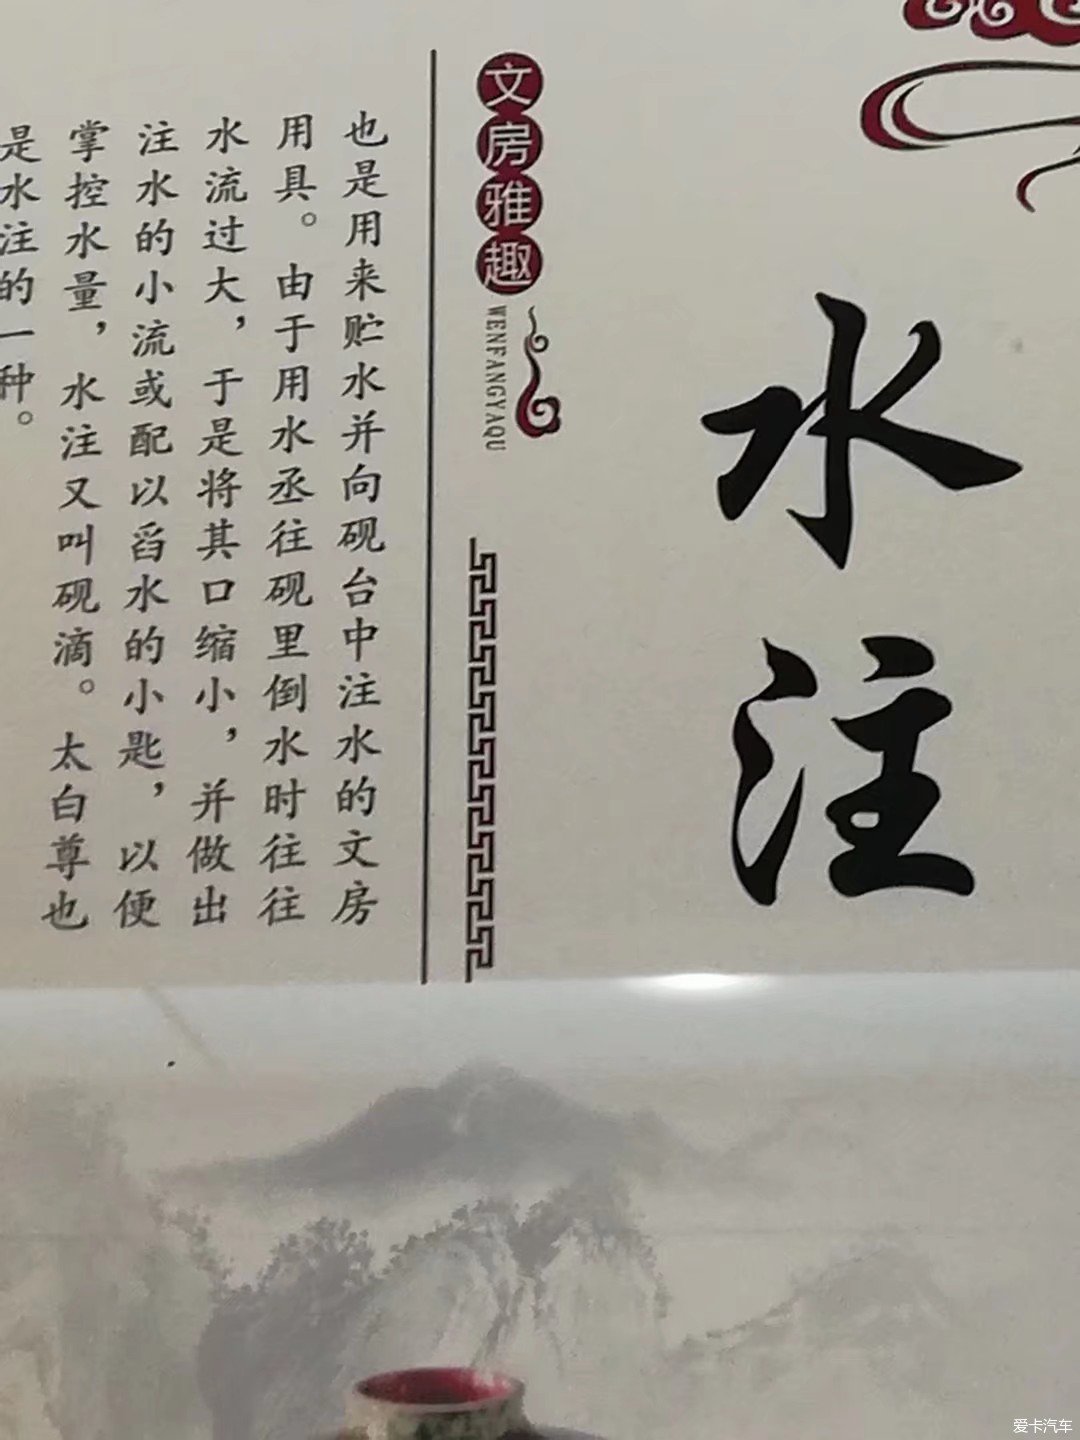 水注
文房雅趣
WENFANGYAQU
也是用来贮水并向砚台中注水的文房
用具。由于用水丞往砚里倒水时往往
水流过大，于是将其口缩小，并做出
注水的小流或配以舀水的小匙，以便
掌控水量，水注又叫砚滴。太白尊也
是水注的一种。
爱卡汽车